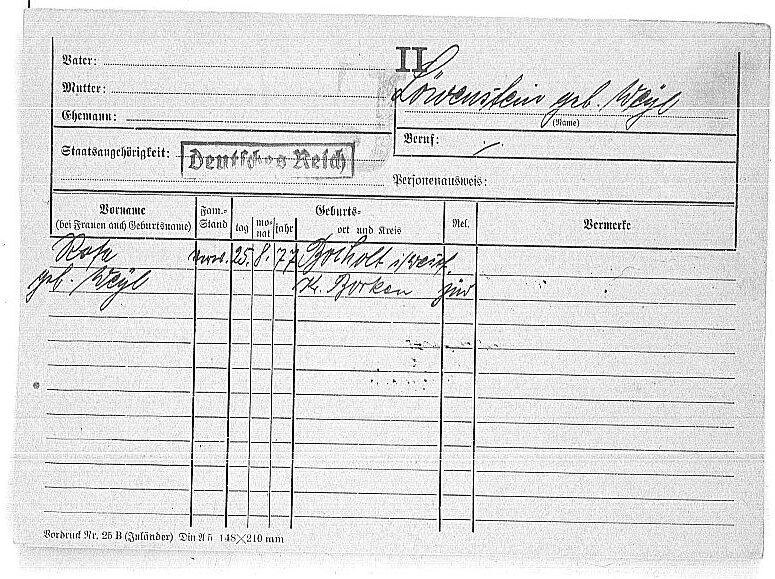 Vater:
II
Mutter:
Löwenstein geb. Weyl
Ehemann:
(Name)
Staatsangehörigkeit: Deutsches Reich
Beruf: ./.
Personenausweis:
Vorname
(bei Frauen auch Geburtsname)
Fam.-
Stand
Geburts-
tag
mo-
nat
jahr
ort und Kreis
Rel.
Vermerke
Rosa verw. 25. 8. 77 Bocholt i/Westf.
geb. Weyl Kr. Borken jüd
Vordruck Nr. 25 B (Inländer) Din A 5 148×210 mm